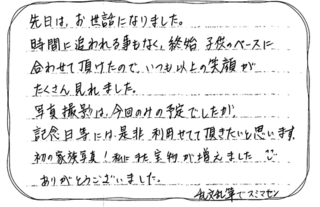 先日は、お世話になりました。
時間に追われる事もなく、終始 子供のペースに
合わせて頂けたので、いつも以上の笑顔が
たくさん見れました。
写真撮影は、今回のみの予定でしたが、
記念日等には、是非 利用させて頂きたいと思います。
初の家族写真! 私にまた宝物が増えました
ありがとうございました。
乱文乱筆でスミマセン